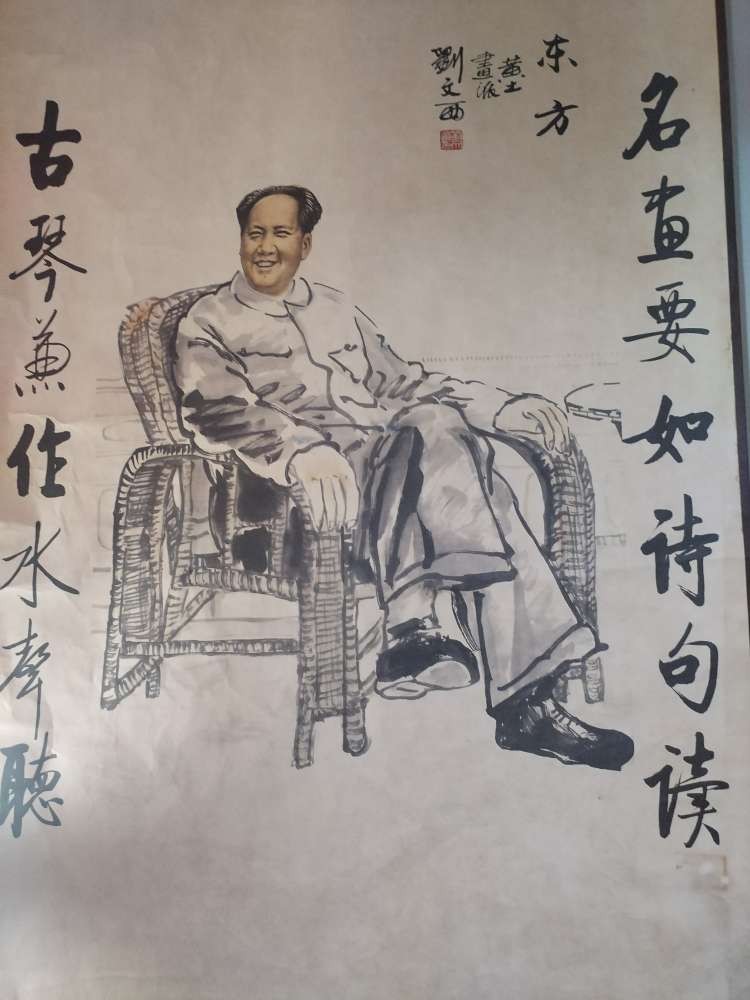 名画要如诗句读
东方
黄土
畫派
劉文西
古琴兼作水聲聽